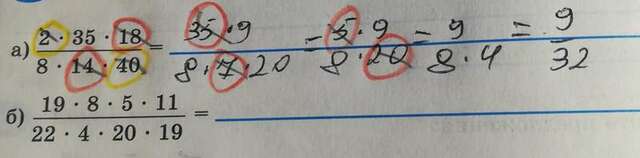 а) 2 · 35 · 18 / 8 · 14 · 40 = 35 · 9 / 8 · 7 · 20 = 5 · 9 / 8 · 20 = 9 / 8 · 4 = 9 / 32
б) 19 · 8 · 5 · 11 / 22 · 4 · 20 · 19 =